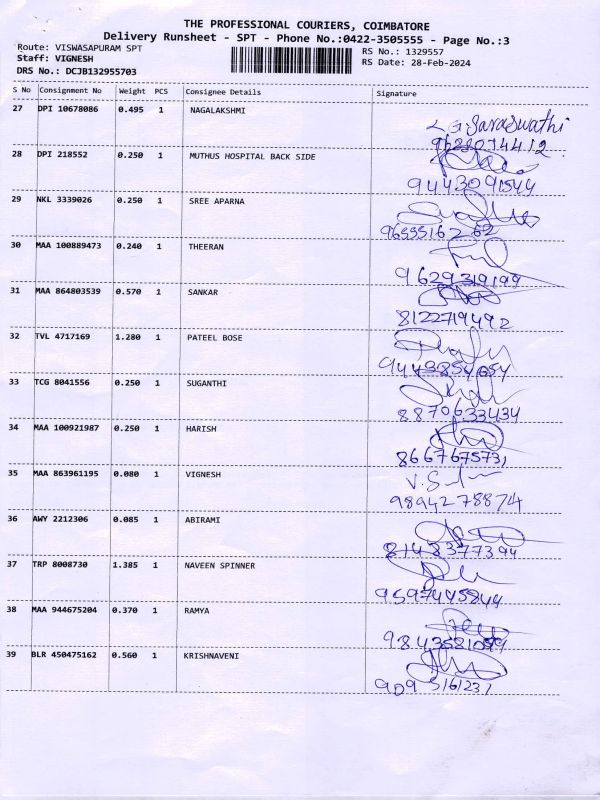 THE PROFESSIONAL COURIERS, COIMBATORE
Delivery Runsheet - SPT - Phone No.:0422-3505555 - Page No.:3
Route: VISWASAPURAM SPT
RS No.: 1329557
Staff: VIGNESH
RS Date: 28-Feb-2024
DRS No.: DCJB132955703
S No Consignment No Weight PCS Consignee Details Signature
27 DPI 10678086 0.495 1 NAGALAKSHMI
L G Saraswathi
28 DPI 218552 0.250 1 MUTHUS HOSPITAL BACK SIDE
9443091544
29 NKL 3339026 0.250 1 SREE APARNA
30 MAA 100889473 0.240 1 THEERAN
9629319199
31 MAA 864803539 0.570 1 SANKAR
8122719492
32 TVL 4717169 1.280 1 PATEEL BOSE
33 TCG 8041556 0.250 1 SUGANTHI
8870633434
34 MAA 100921987 0.250 1 HARISH
8667675731
35 MAA 863961195 0.080 1 VIGNESH
9894278874
36 AWY 2212306 0.085 1 ABIRAMI
8148377394
37 TRP 8008730 1.385 1 NAVEEN SPINNER
9597445844
38 MAA 944675204 0.370 1 RAMYA
39 BLR 450475162 0.560 1 KRISHNAVENI